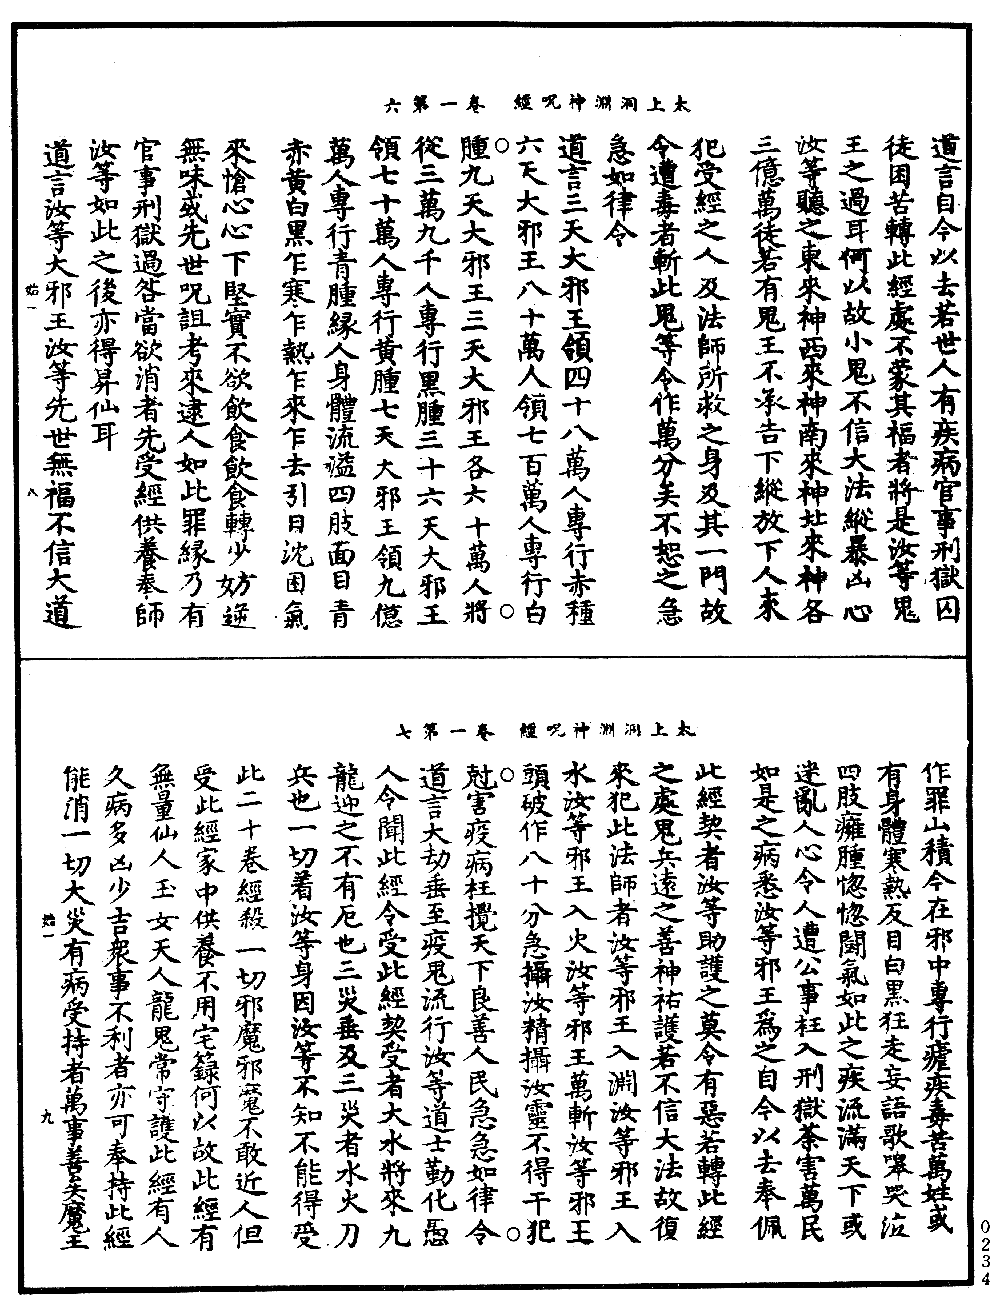 太上洞淵神呪經　卷一第六
道言自今以去若世人有疾病官事刑獄囚
徒困苦轉此經處不蒙其福者將是汝等鬼
王之過耳何以故小鬼不信大法縱暴凶心
汝等聽之東來神西來神南來神北來神各
三億萬徒若有鬼王不承吉下縱放下人來
犯受經之人及法師所救之身及其一門故
令遭毒者斬此鬼等令作萬分矣不恕之急
急如律令
道言三天大邪王領四十八萬人專行赤種
六天大邪王八十萬人領七百萬人專行白
腫九天大邪王三天大邪王各六十萬人將
從三萬九千人專行黑腫三十六天大邪王
領七十萬人專行黃腫七天大邪王領九億
萬人專行青腫緣人身體流溢四肢面目青
赤黃白黑乍寒乍熱乍來乍去引日沈困氣
來愴心心下堅實不欲飲食飲食轉少妨逆
無味或先世呪詛考來逮人如此罪緣乃有
官事刑獄過咎當欲消者先受經供養奉師
汝等如此之後亦得昇仙耳
道言汝等大邪王汝等先世無福不信大道
始一　八
太上洞淵神呪經　卷一第七
作罪山積今在邪中專行瘧疾毒苦萬姓或
有身體寒熱反目白黑狂走妄語歌嘷哭泣
四肢癰腫惚惚鬪氣如此之疾流滿天下或
迷亂人心令人遭公事枉入刑獄荼害萬民
如是之病悉汝等邪王爲之自今以去奉佩
此經契者汝等助護之莫令有惡若轉此經
之處鬼兵遠之善神祐護若不信大法故復
來犯此法師者汝等邪王入淵汝等邪王入
水汝等邪王入火汝等邪王萬斬汝等邪王
頭破作八十分急攝汝精攝汝靈不得干犯
尅害疫病枉攪天下良善人民急急如律令
道言大劫垂至疫鬼流行汝等道士勤化愚
人令聞此經令受此經契受者大水將來九
龍迎之不有厄也三災垂及三災者水火刀
兵也一切着汝等身因汝等不知不能得受
此二十卷經殺一切邪魔邪魔不敢近人但
受此經家中供養不用宅籙何以故此經有
無量仙人玉女天人龍鬼常守護此經有人
久病多凶少吉衆事不利者亦可奉持此經
能消一切大災有病受持者萬事善矣魔王
始一　九
0234